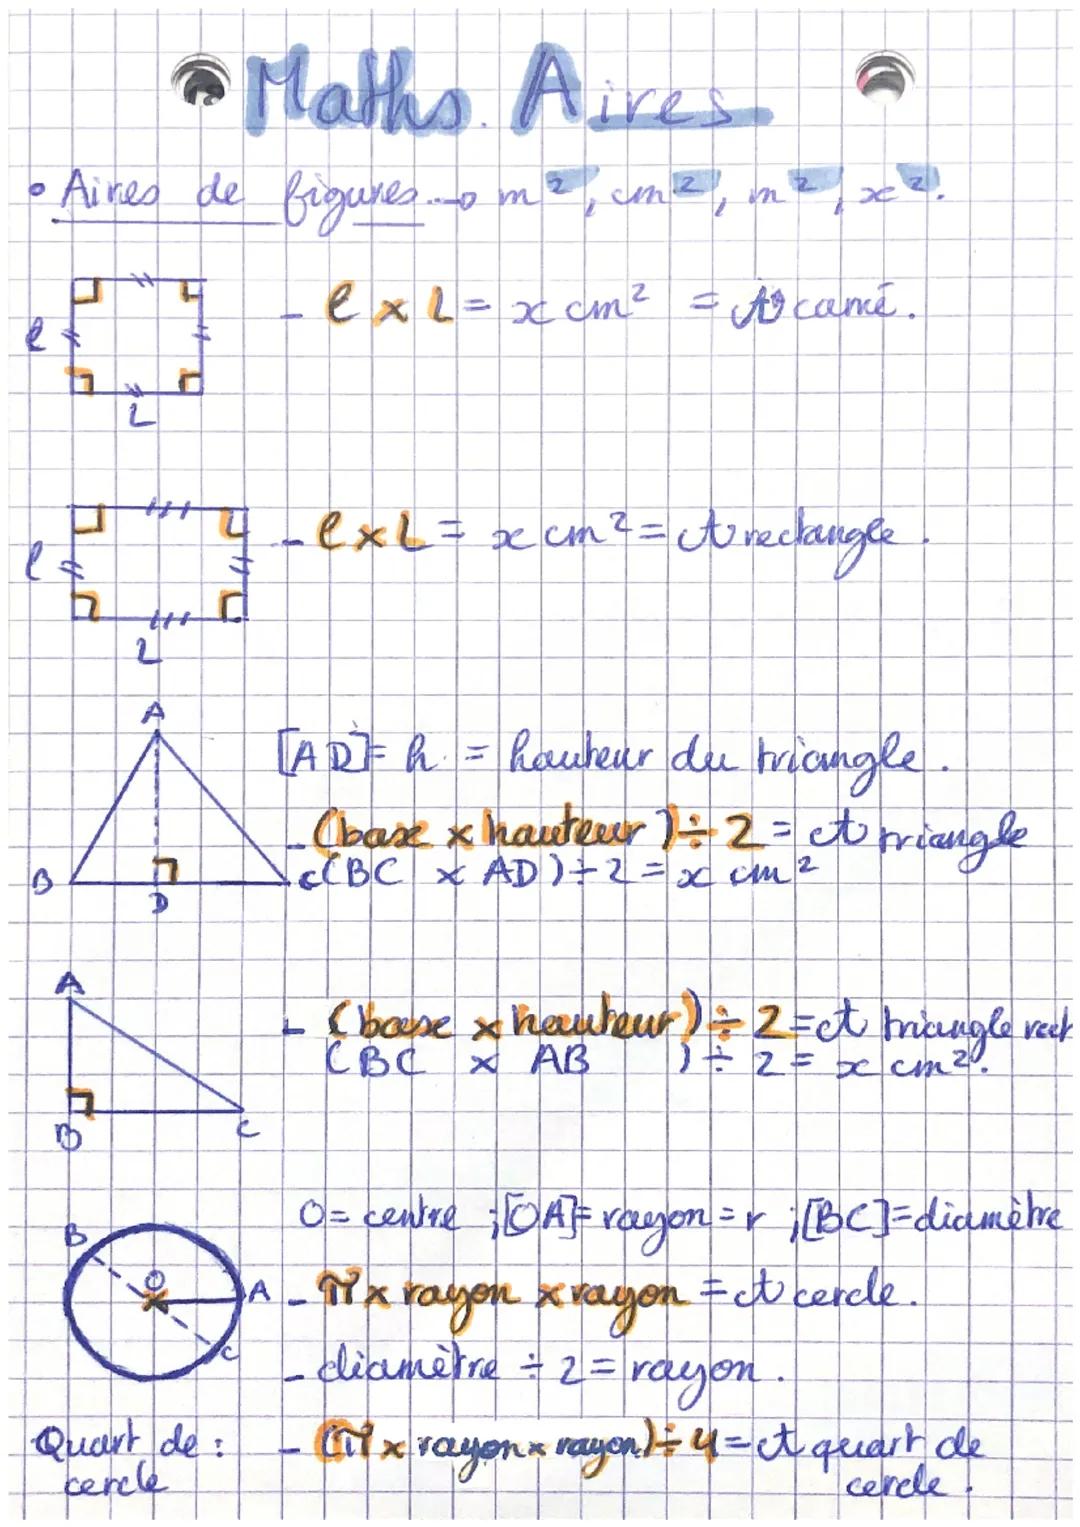 Maths. Aires
• Aires de figures → m², cm², m², x².
l
L
- l x L = x cm² = A carré.
l
L
- l x L = x cm² = A rectangle.
A
B
D
C
[AD] = h. = hauteur du triangle.
- (base x hauteur) ÷ 2 = A triangle
(BC x AD) ÷ 2 = x cm²
A
B
C
- (base x hauteur) ÷ 2 = A triangle rect
(BC x AB) ÷ 2 = x cm².
B
O
A
C
O = centre ; [OA] = rayon = r ; [BC] = diamètre
- π x rayon x rayon = A cercle.
- diamètre ÷ 2 = rayon.
Quart de : cercle
- (π x rayon x rayon) ÷ 4 = A quart de
cercle.